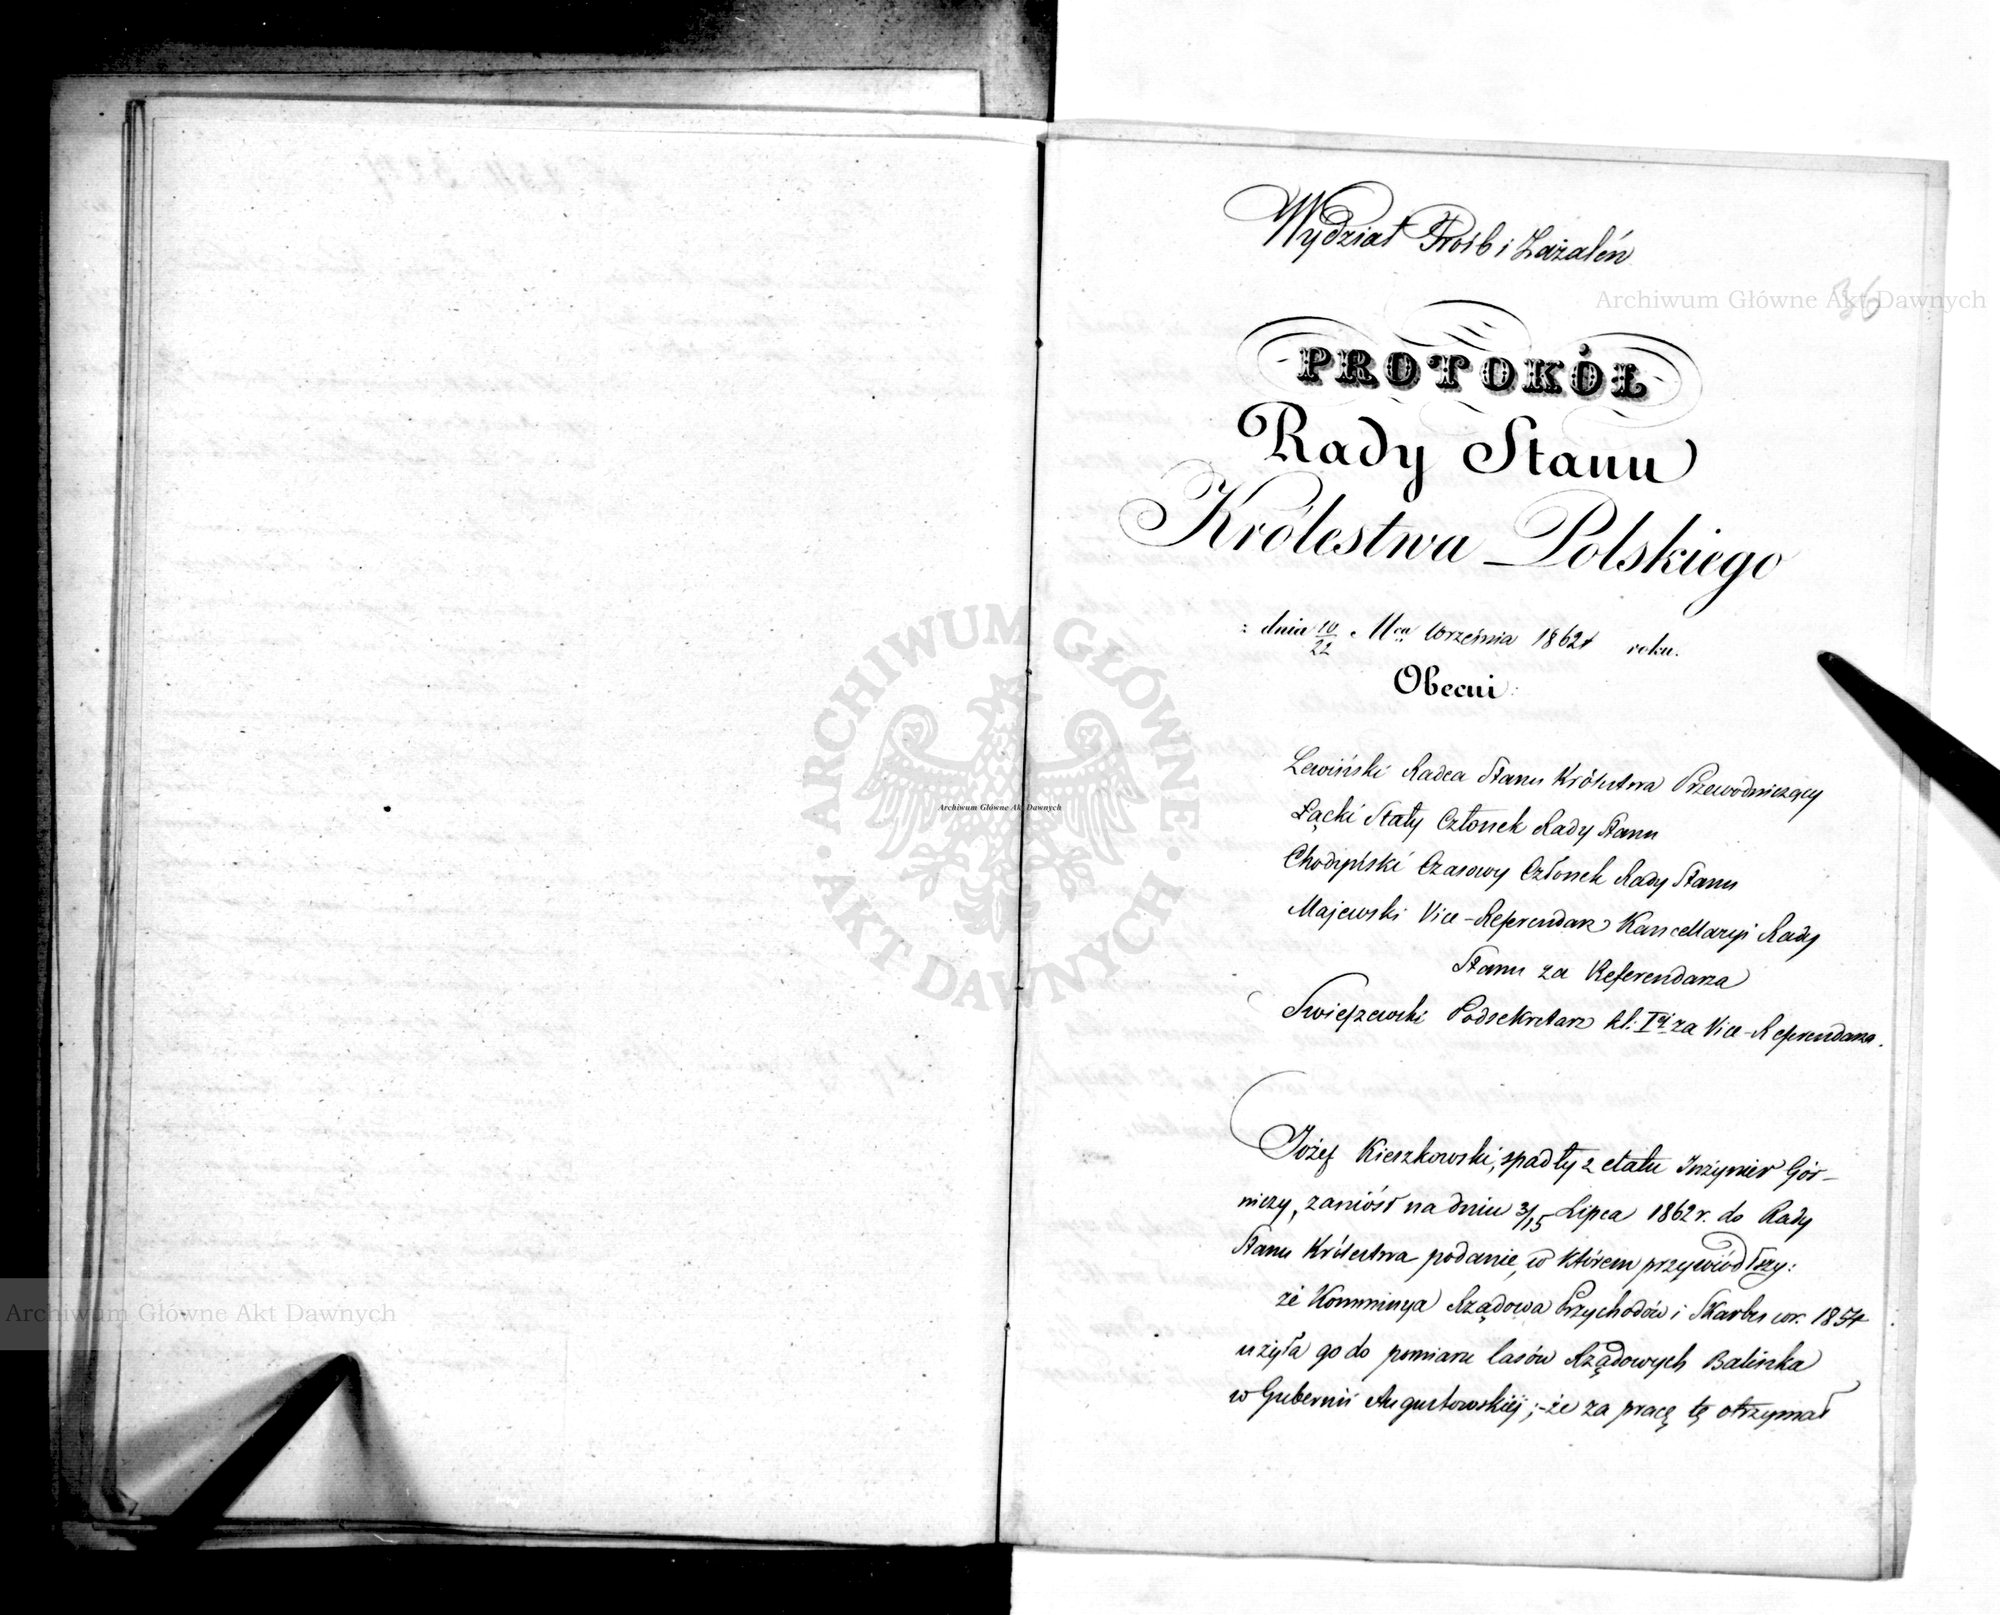 Wydział Próśb i Zażaleń
36
Archiwum Główne Akt Dawnych
PROTOKÓŁ
Rady Stanu
Królestwa Polskiego
dnia 10/22 Mca Września 1862 roku.
Obecni:
Lewiński Radca Stanu Królestwa Przewodniczący
Łącki Stały Członek Rady Stanu
Czasowy Członek Rady Stanu
Majewski Vice-Referendarz Kancellaryi Rady
Stanu za Referendarza
Podsekretarz kl: Iéj za Vice-Referendarza.
Józef Kieszkowski, spadły z etatu Inżynier Gór-
niczy, zaniósł na dniu 3/15 Lipca 1862 r. do Rady
Stanu Królestwa podanie, w którem przywiódłszy:
że Kommissya Rządowa Przychodów i Skarbu w r. 1854
użyła go do pomiaru lasów Rządowych Balinka
w Gubernii Augustowskiéj; - że za pracę tę otrzymał
ARCHIWUM GŁÓWNE
AKT DAWNYCH
Archiwum Główne Akt Dawnych
Archiwum Główne Akt Dawnych